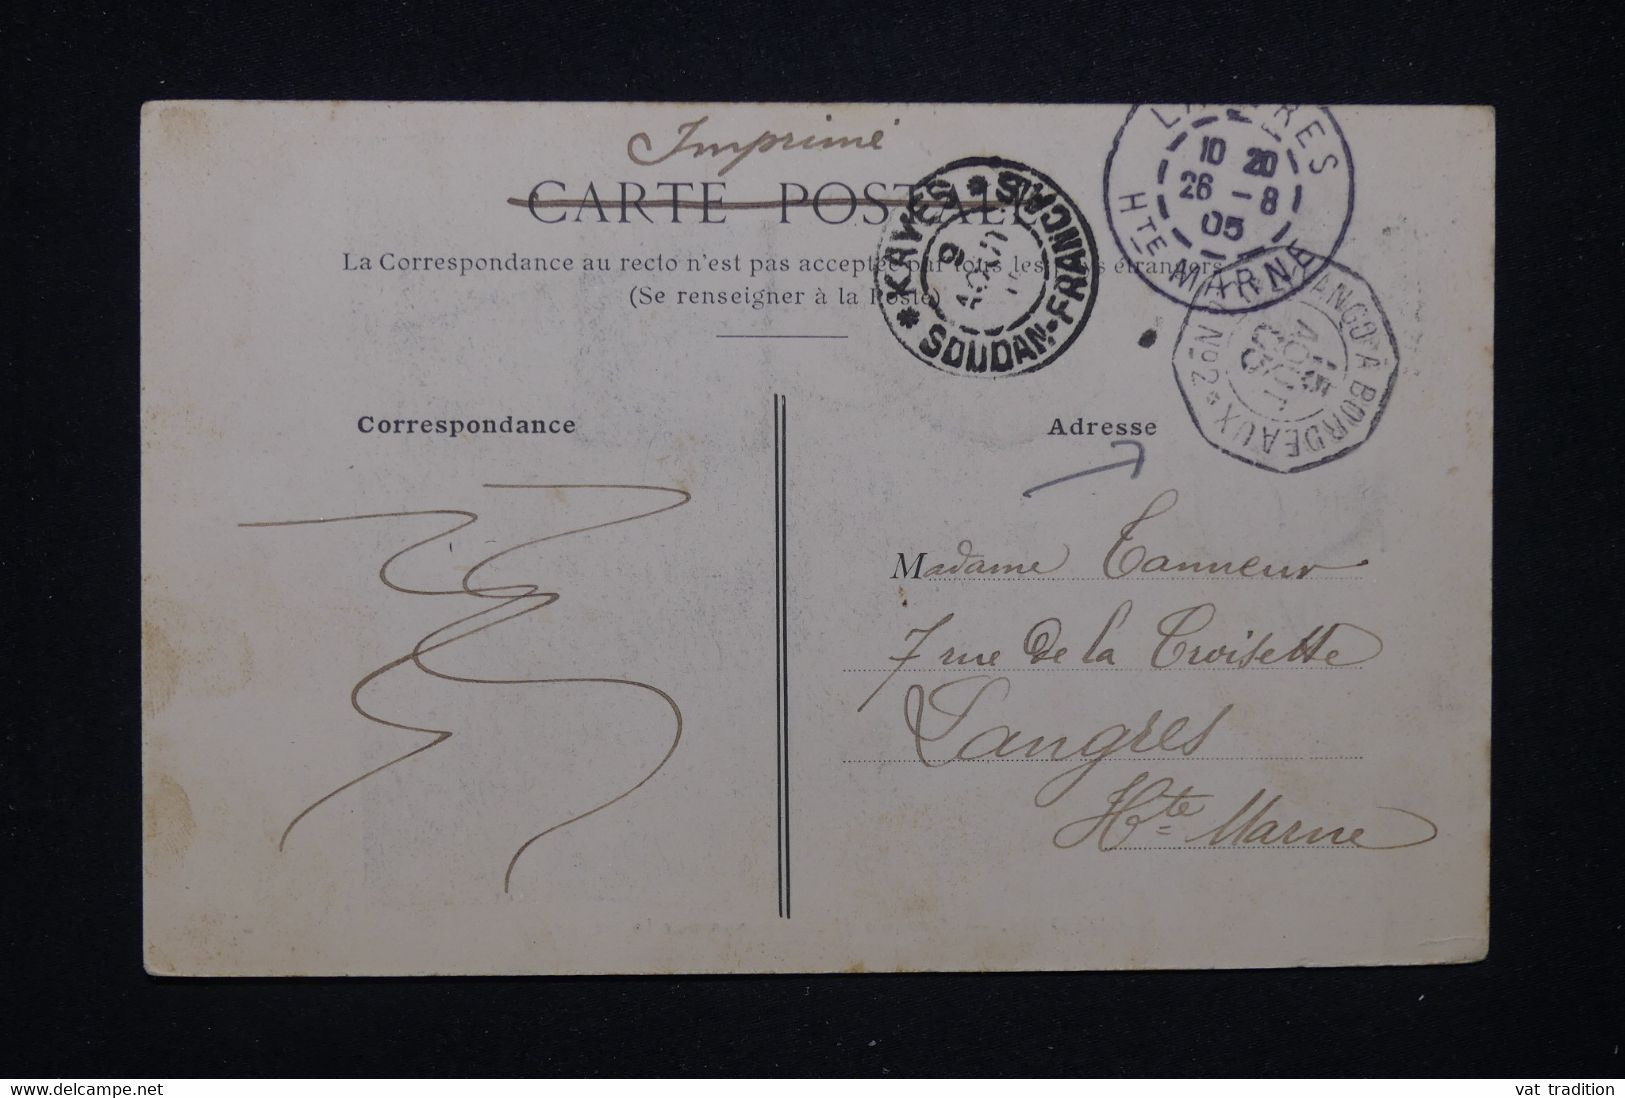 Imprimé
CARTE POSTALE
La Correspondance au recto n'est pas acceptée par tous les pays étrangers
(Se renseigner à la Poste)
* KAYES * SOUDAN-FRANÇAIS
9
AOUT
LANGRES
10 20
26 - 8
05
Hte MARNE
À BORDEAUX * No 2
AOUT
Correspondance
Adresse
Madame Tanneur
7 rue de la Croisette
Langres
Hte Marne
delcampe.net
vat tradition